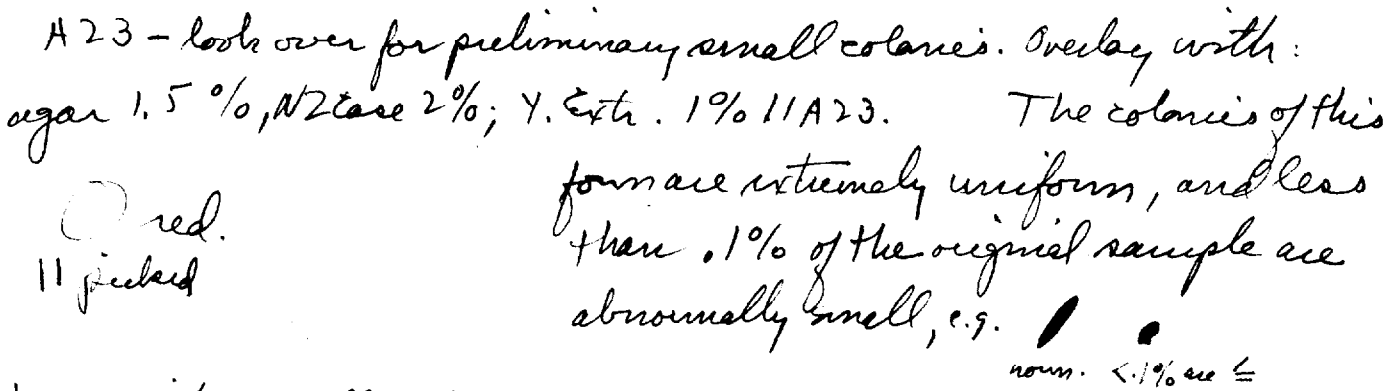 A23 – look over for preliminary small colonies. Overlay with:
agar 1.5 %, NZCase 2%; Y. Extr. 1% 11A23. The colonies of this
form are extremely uniform, and less
red. than .1% of the original sample are
11 picked
abnormally small, e.g.
norm. <.1% are ≤